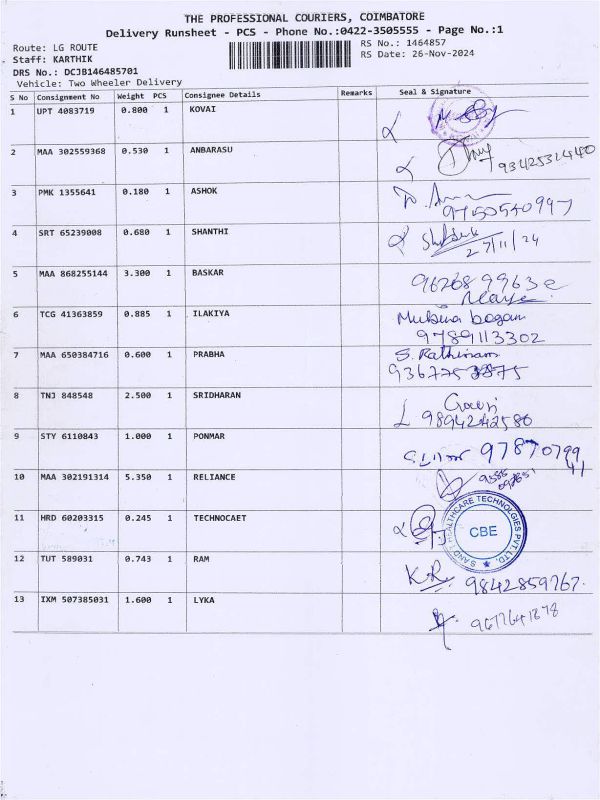 THE PROFESSIONAL COURIERS, COIMBATORE
Delivery Runsheet - PCS - Phone No.:0422-3505555 - Page No.:1
Route: LG ROUTE
RS No.: 1464857
Staff: KARTHIK
RS Date: 26-Nov-2024
DRS No.: DCJB146485701
Vehicle: Two Wheeler Delivery
S No Consignment No Weight PCS Consignee Details Remarks Seal & Signature
1 UPT 4083719 0.800 1 KOVAI
2 MAA 302559368 0.530 1 ANBARASU
3 PMK 1355641 0.180 1 ASHOK
9750540997
4 SRT 65239008 0.680 1 SHANTHI
27/11/24
5 MAA 868255144 3.300 1 BASKAR
6 TCG 41363859 0.885 1 ILAKIYA
Mubina begam
9789113302
7 MAA 650384716 0.600 1 PRABHA
S. Rathinam
8 TNJ 848548 2.500 1 SRIDHARAN
Gowri
9894242580
9 STY 6110843 1.000 1 PONMAR
9787079941
10 MAA 302191314 5.350 1 RELIANCE
11 HRD 60203315 0.245 1 TECHNOCAET
HEALTHCARE TECHNOLGIES PVT. LTD.
CBE
12 TUT 589031 0.743 1 RAM
K.R. 9842859767.
13 IXM 507385031 1.600 1 LYKA